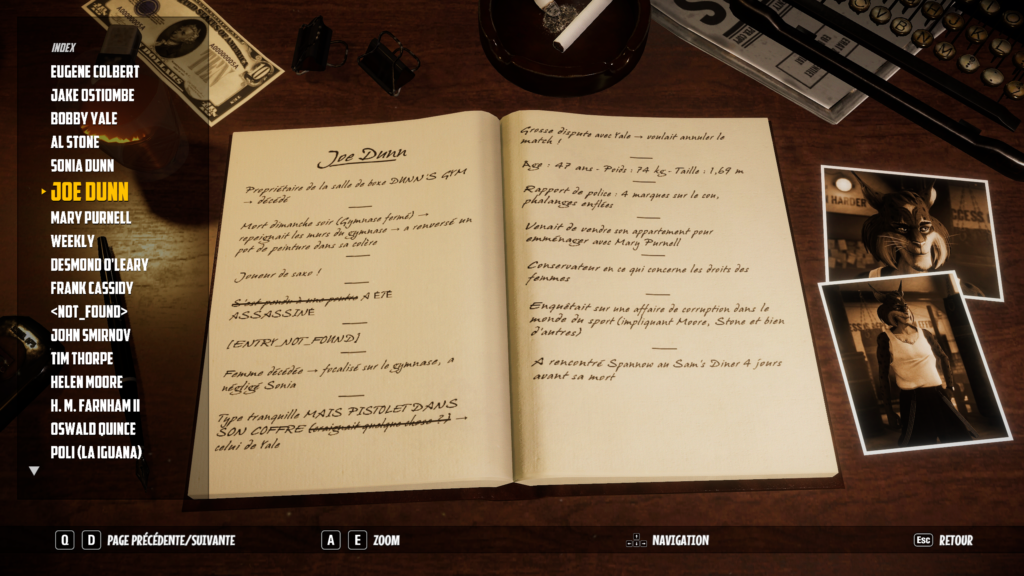 INDEX
EUGENE COLBERT
JAKE OSTIOMBE
BOBBY YALE
AL STONE
SONIA DUNN
JOE DUNN
MARY PURNELL
WEEKLY
DESMOND O'LEARY
FRANK CASSIDY
<NOT_FOUND>
JOHN SMIRNOV
TIM THORPE
HELEN MOORE
H. M. FARNHAM II
OSWALD QUINCE
POLI (LA IGUANA)
Joe Dunn
Propriétaire de la salle de boxe DUNN'S GYM
→ décédé
Mort dimanche soir (Gymnase fermé) →
repeignait les murs du gymnase → a renversé un
pot de peinture dans sa colère
Joueur de saxo !
S'est pendu à une poutre A ÉTÉ
ASSASSINÉ
[ENTRY_NOT_FOUND]
Femme décédée → focalisé sur le gymnase, a
négligé Sonia
Type tranquille MAIS PISTOLET DANS
SON COFFRE (craignait quelque chose ?) →
celui de Yale
Grosse dispute avec Yale → voulait annuler le
match !
Age : 47 ans - Poids : 74 kg - Taille : 1,69 m
Rapport de police : 4 marques sur le cou,
phalanges enflées
Venait de vendre son appartement pour
emménager avec Mary Purnell
Conservateur en ce qui concerne les droits des
femmes
Enquêtait sur une affaire de corruption dans le
monde du sport (impliquant Moore, Stone et bien
d'autres)
A rencontré Spannow au Sam's Diner 4 jours
avant sa mort
HARDER
Q D PAGE PRÉCÉDENTE/SUIVANTE
A E ZOOM
NAVIGATION
Esc RETOUR